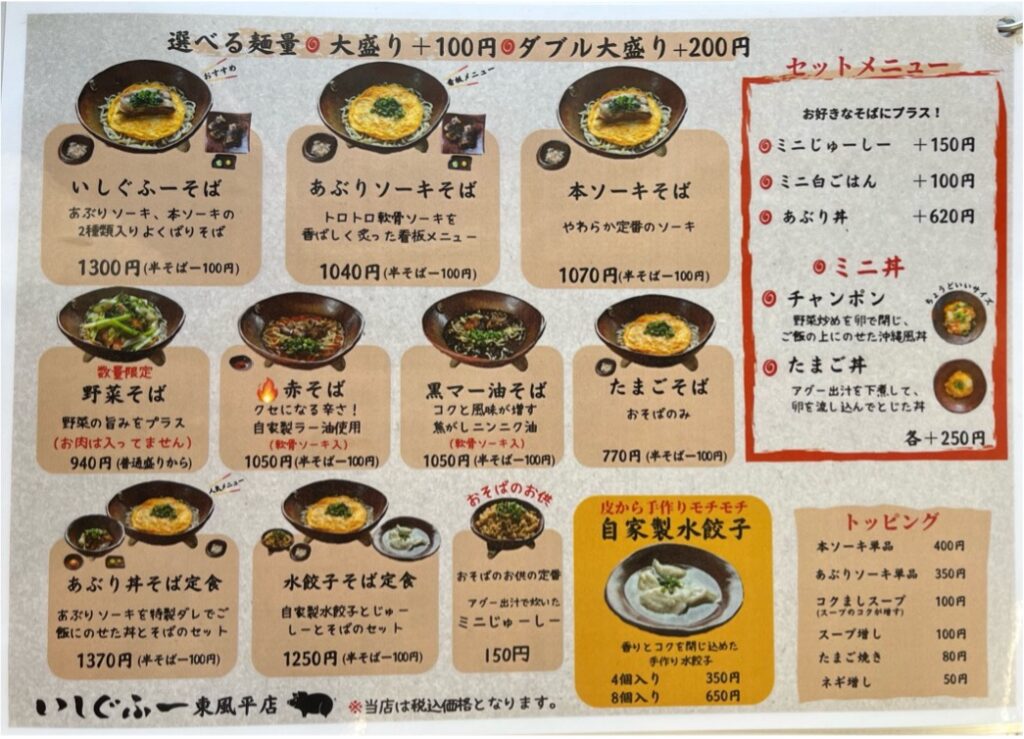 選べる麺量 大盛り+100円 ダブル大盛り+200円
おすすめ
いしぐふーそば
あぶりソーキ、本ソーキの
2種類入りよくばりそば
1300円(半そばー100円)
看板メニュー
あぶりソーキそば
トロトロ軟骨ソーキを
香ばしく炙った看板メニュー
1040円(半そばー100円)
本ソーキそば
やわらか定番のソーキ
1070円(半そばー100円)
数量限定
野菜そば
野菜の旨みをプラス
(お肉は入ってません)
940円(普通盛りから)
赤そば
クセになる辛さ!
自家製ラー油使用
(軟骨ソーキ入)
1050円(半そばー100円)
黒マー油そば
コクと風味が増す
焦がしニンニク油
(軟骨ソーキ入)
1050円(半そばー100円)
たまごそば
おそばのみ
770円(半そばー100円)
人気メニュー
あぶり丼そば定食
あぶりソーキを特製ダレでご
飯にのせた丼とそばのセット
1370円(半そばー100円)
水餃子そば定食
自家製水餃子とじゅー
しーとそばのセット
1250円(半そばー100円)
おそばのお供
おそばのお供の定番
アグー出汁で炊いた
ミニじゅーしー
150円
皮から手作りモチモチ
自家製水餃子
香りとコクを閉じ込めた
手作り水餃子
4個入り 350円
8個入り 650円
セットメニュー
お好きなそばにプラス!
ミニじゅーしー +150円
ミニ白ごはん +100円
あぶり丼 +620円
ミニ丼
ちょうどいいサイズ
チャンポン
野菜炒めを卵で閉じ、
ご飯の上にのせた沖縄風丼
たまご丼
アグー出汁を下煮して、
卵を流し込んでとじた丼
各+250円
トッピング
本ソーキ単品 400円
あぶりソーキ単品 350円
コクましスープ 100円
(スープのコクが増す)
スープ増し 100円
たまご焼き 80円
ネギ増し 50円
いしぐふー東風平店
※当店は税込価格となります。